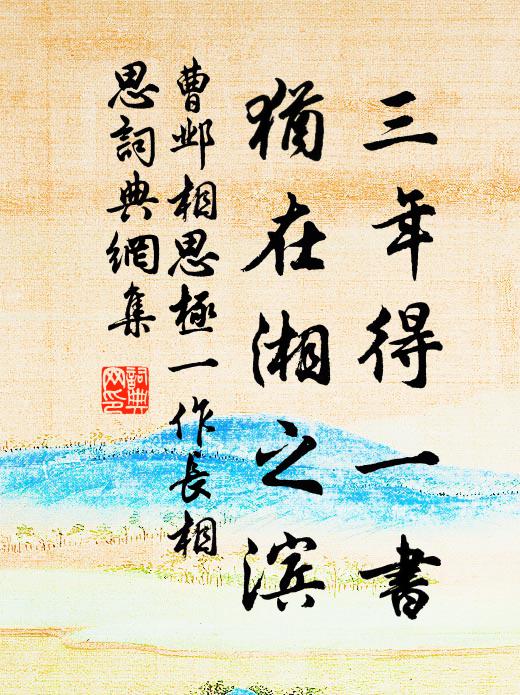 三年得一書
猶在湘之濱
曹邺相思極一作長相
思詞典網集
詞典
网印